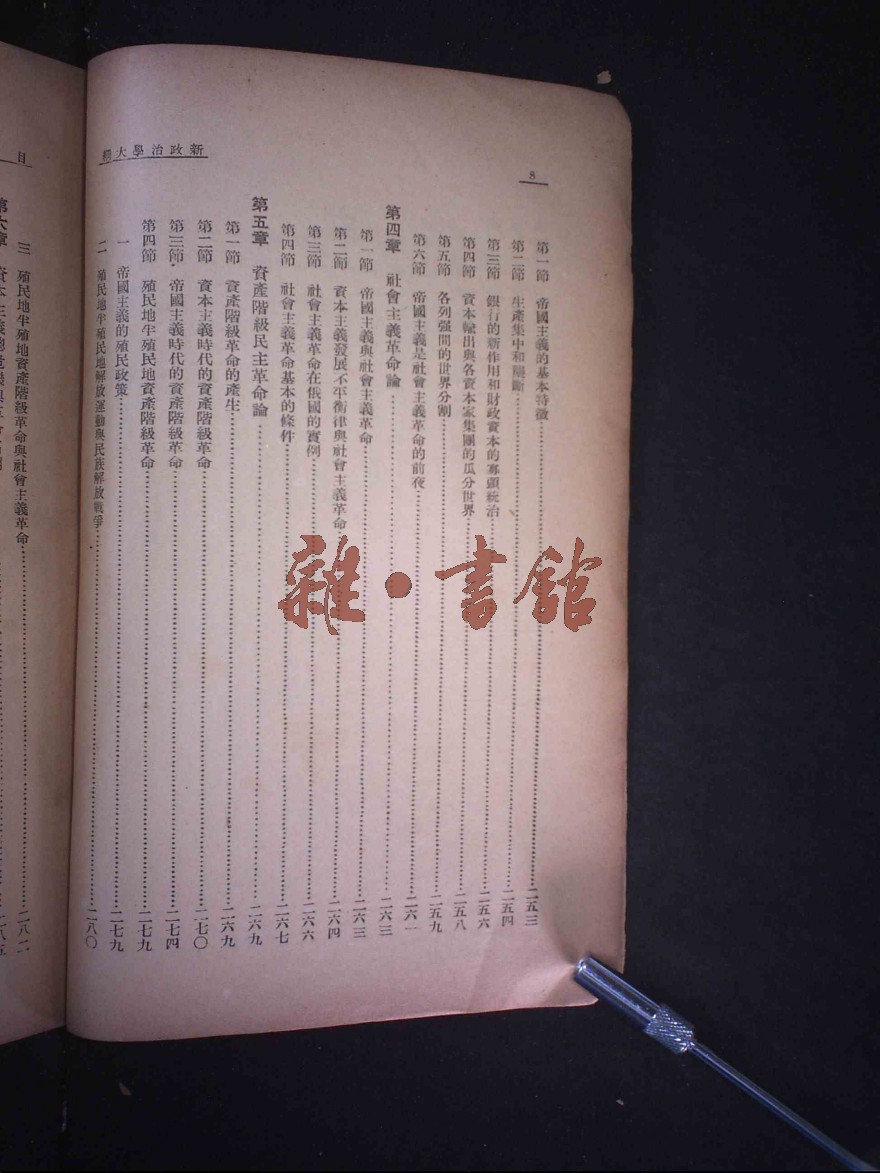 8
新政治學大綱
第一節 帝國主義的基本特徵 二五三
第二節 生產集中和壟斷 二五四
第三節 銀行的新作用和財政資本的寡頭統治 二五六
第四節 資本輸出與各資本家集團的瓜分世界 二五八
第五節 各列强間的世界分割 二五九
第六節 帝國主義是社會主義革命的前夜 二六一
第四章 社會主義革命論 二六三
第一節 帝國主義與社會主義革命 二六三
第二節 資本主義發展不平衡律與社會主義革命 二六四
第三節 社會主義革命在俄國的實例 二六六
第四節 社會主義革命基本的條件 二六七
第五章 資產階級民主革命論 二六九
第一節 資產階級革命的產生 二六九
第二節 資本主義時代的資產階級革命 二七〇
第三節 帝國主義時代的資產階級革命 二七四
第四節 殖民地半殖民地資產階級革命 二七九
一 帝國主義的殖民政策 二七九
二 殖民地半殖民地解放運動與民族解放戰爭 二八〇
目
三 殖民地半殖地資產階級革命與社會主義革命 二八二
第六章 資本主義總危機與
雜·書館